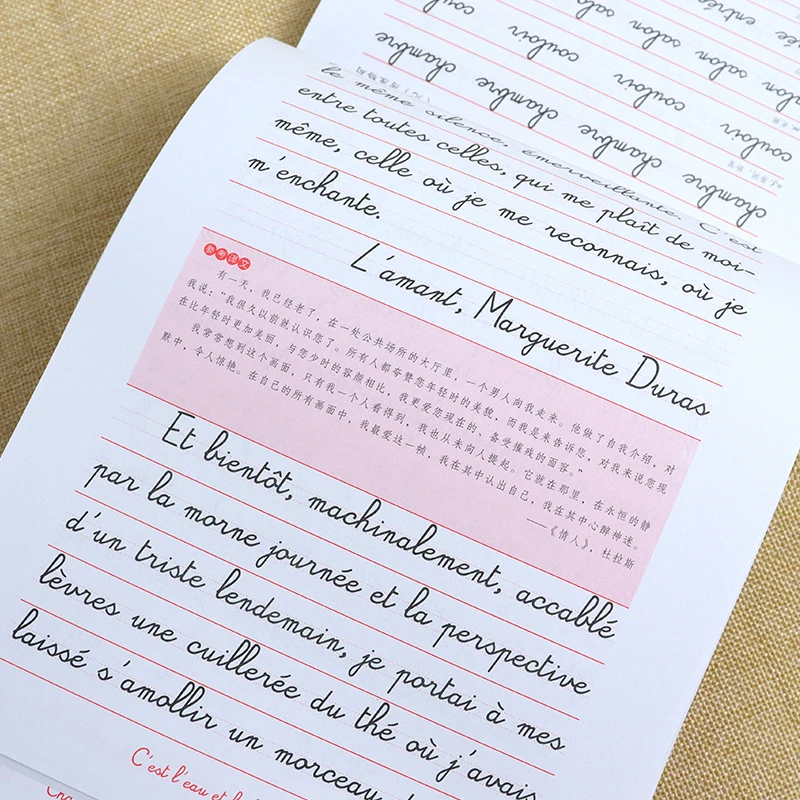 le même silence, émerveillante. C'est
entre toutes celles, qui me plaît de moi-
même, celle où je me reconnais, où je
m'enchante.
L'amant, Marguerite Duras
参考译文
有一天，我已经老了，在一处公共场所的大厅里，一个男人向我走来。他做了自我介绍，对
我说：“我很久以前就认识您了。所有人都夸赞您年轻时的美貌，而我是来告诉您，对我来说您现
在比年轻时更加美丽，与您少时的容颜相比，我更爱您现在的、备受摧残的面容。”
我常常想到这个画面，只有我一个人看得到，我也从未向人提起。它就在那里，在永恒的静
默中，令人惊艳。在自己的所有画面中，我最爱这一帧，我在其中认出自己，我在其中心醉神迷。
——《情人》，杜拉斯
Et bientôt, machinalement, accablé
par la morne journée et la perspective
d'un triste lendemain, je portai à mes
lèvres une cuillerée du thé où j'avais
laissé s'amollir un morceau
C'est l'eau et l
chambre chambre chambre chambre
couloir couloir couloir couloir
salon salon salon
entrée